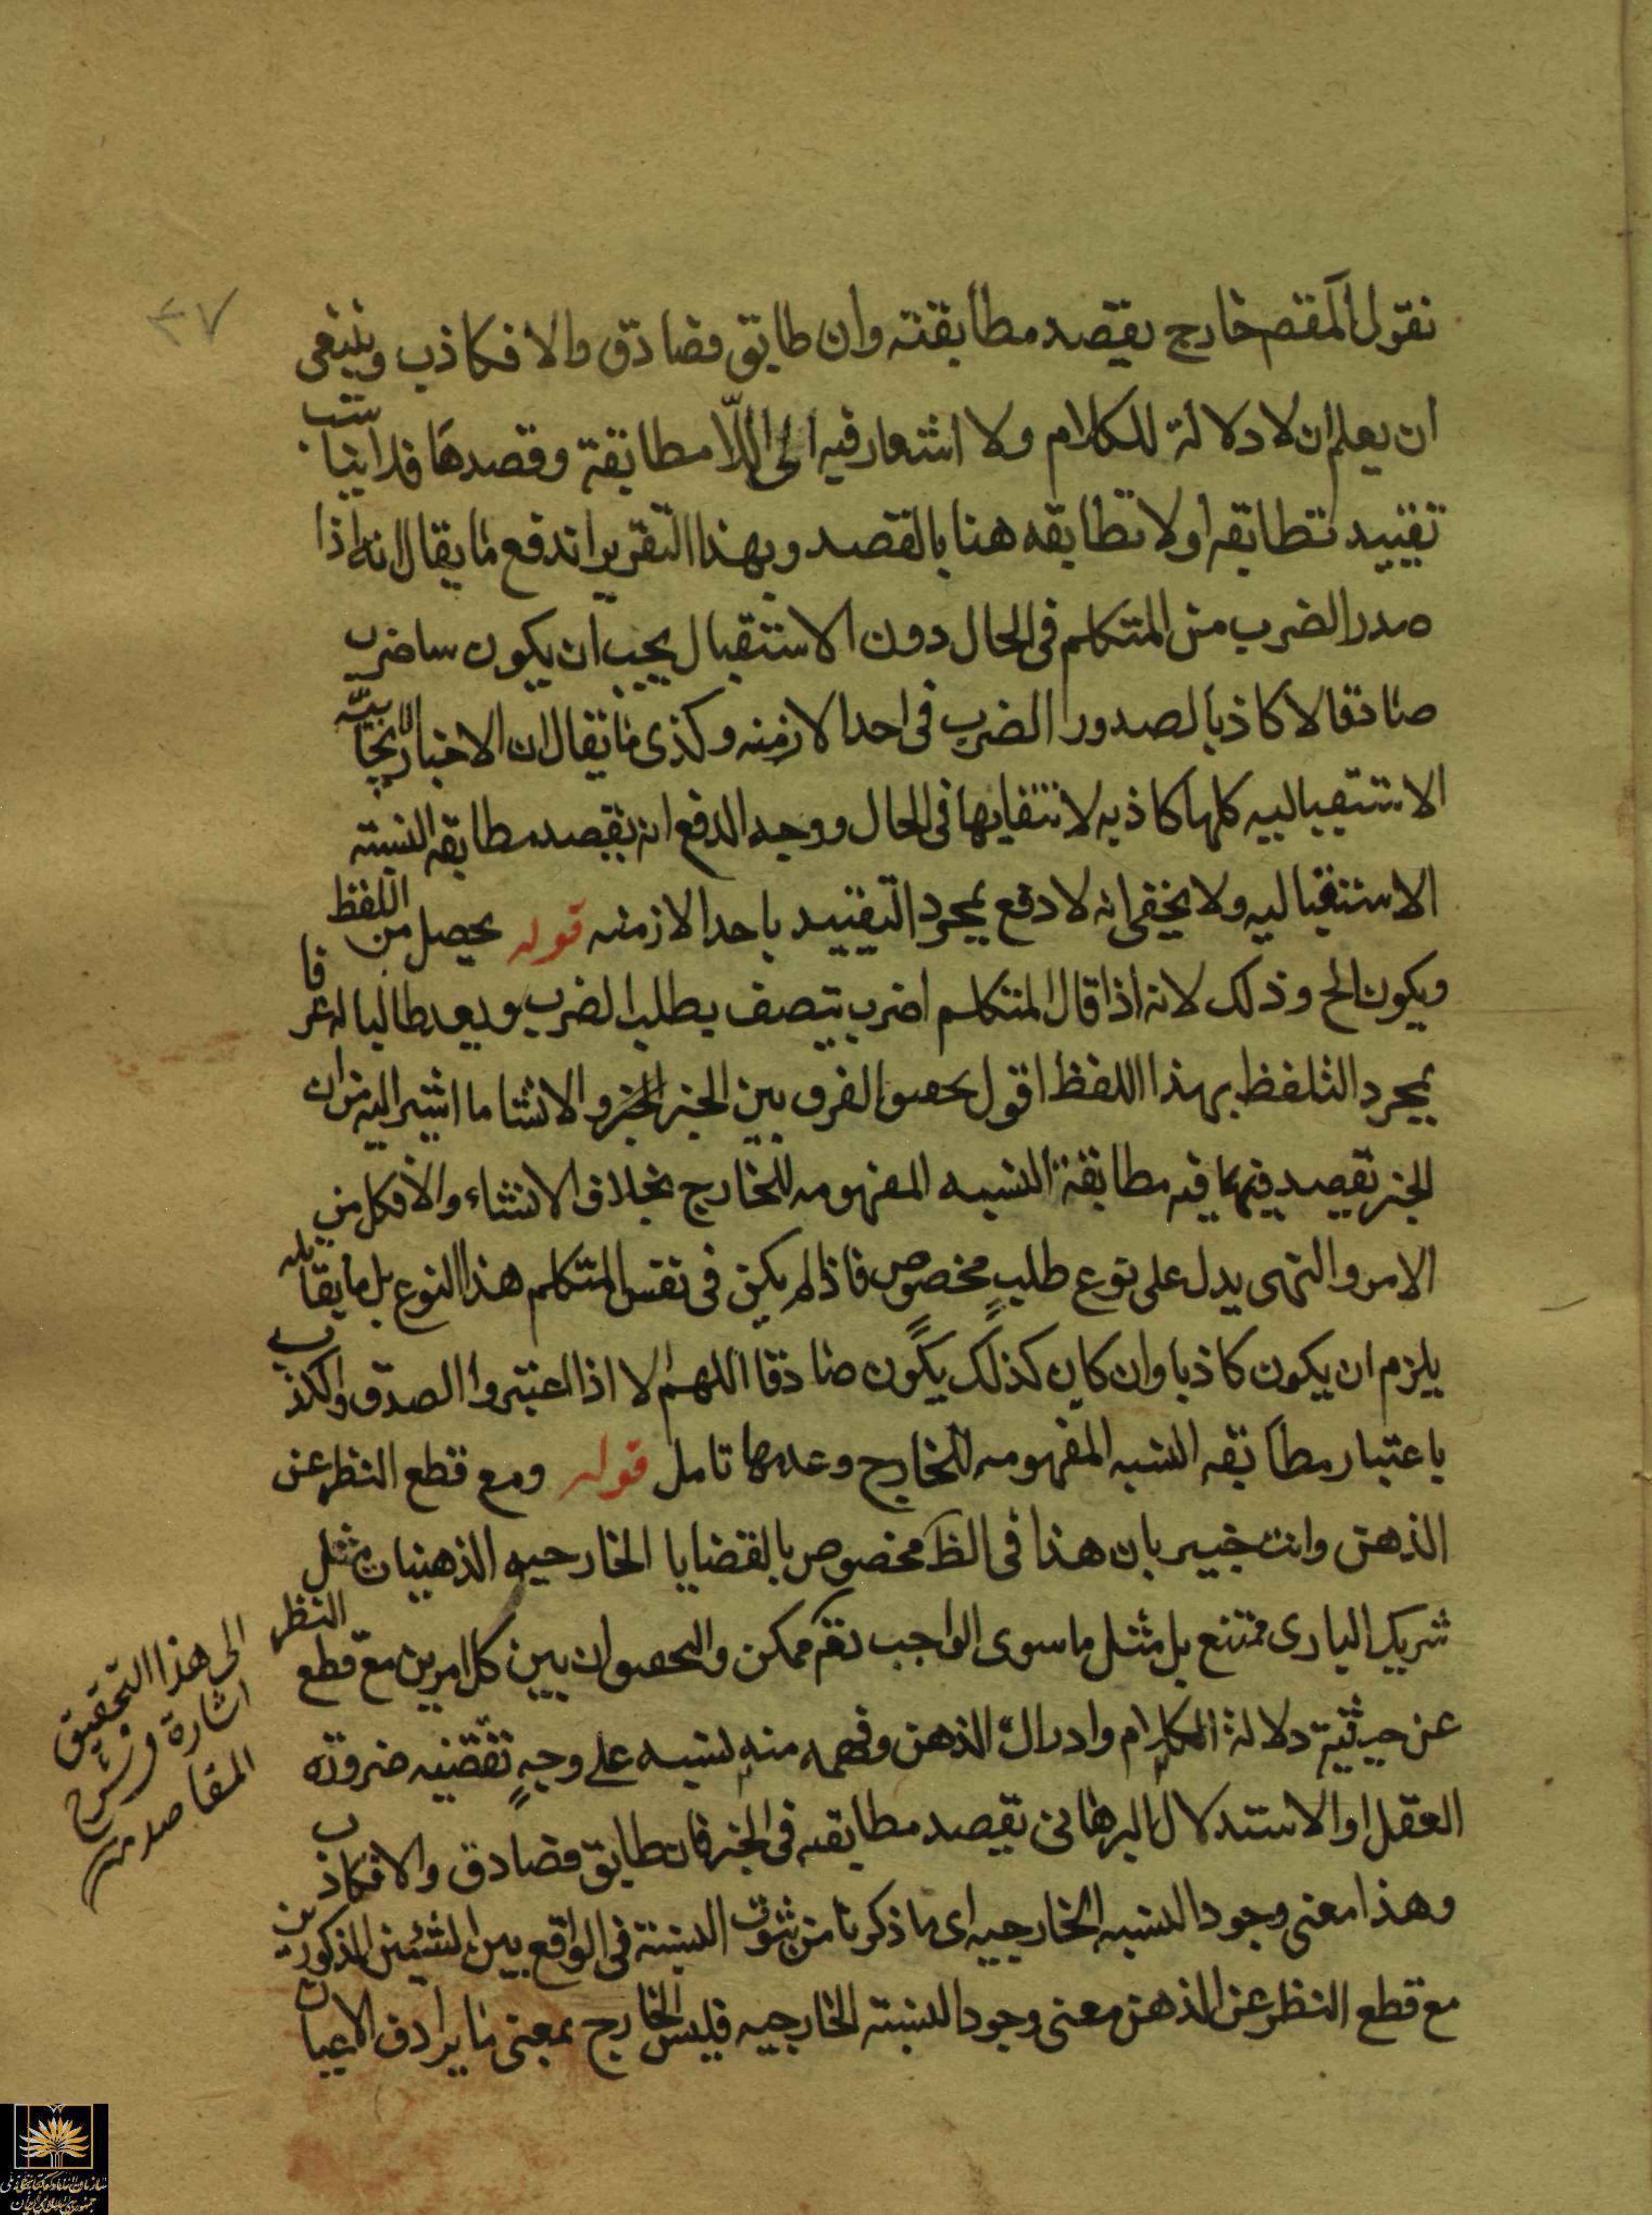 ٣٧
نقول المقصم خارج يقصد مطابقته وان طابق فصادق والا فكاذب وينبغى
ان يعلم ان لا دلالة للكلام ولا اشعار فيه الى اللّا مطابقة وقصدها فلا يناسب
تقييد تطابقه اولا تطابقه هنا بالقصد وبهذا التقرير اندفع ما يقال انه اذا
صدر الضرب من المتكلم فى الحال دون الاستقبال يجب ان يكون ساضرب
صادقا لا كاذبا لصدور الضرب فى احد الازمنه وكذى ما يقال ان الاخبار الايجابيّه
الاستقباليه كلها كاذبه لانتفايها فى الحال ووجه الدفع انه يقصد مطابقه النسبته
الاستقباليه ولا يخفى انه لا دفع بمجرد التقييد باحد الازمنه قوله يحصل من اللفظ
ويكون الخ وذلك لانه اذا قال المتكلم اضرب يتصف بطلب الضرب ويعد طالبا له عرفا
بمجرد التلفظ بهذا اللفظ اقول تحقيق الفرق بين الخبر والانشا ما اشير اليه من ان
الخبر يقصد فيه مطابقة النسبه المفهومه للخارج بخلاف الانشاء والا فكل من
الامر والنهى يدل على نوع طلبٍ مخصوص فاذا لم يكن فى نفس المتكلم هذا النوع بل ما يقابله
يلزم ان يكون كاذبا وان كان كذلك يكون صادقا اللهم الا اذا اعتبروا الصدق والكذب
باعتبار مطابقه النسبه المفهومه للخارج وعدمها تامل قوله ومع قطع النظر عن
الذهن وانت خبير بان هذا فى الظ مخصوص بالقضايا الخارجيه الذهنيات مثل
شريك البارى ممتنع بل مثل ما سوى الواجب تعم ممكن والتحقيق ان بين كل امرين مع قطع النظر
عن حيثية دلالة الكلام وادراك الذهن وفهمه منه نسبه على وجهٍ تقتضيه ضرورة
العقل او الاستدلال البرهانى يقصد مطابقته فى الخبر فان طابق فصادق والا فكاذب
وهذا معنى وجود النسبه الخارجيه اى ما ذكرنا من ثبوت النسبة فى الواقع بين الشيئين المذكورين
مع قطع النظر عن الذهن معنى وجود النسبته الخارجيه فليس الخارج بمعنى ما يرادف الاعيان
الى هذا التحقيق
اشارة فى شرح
المقاصد منه